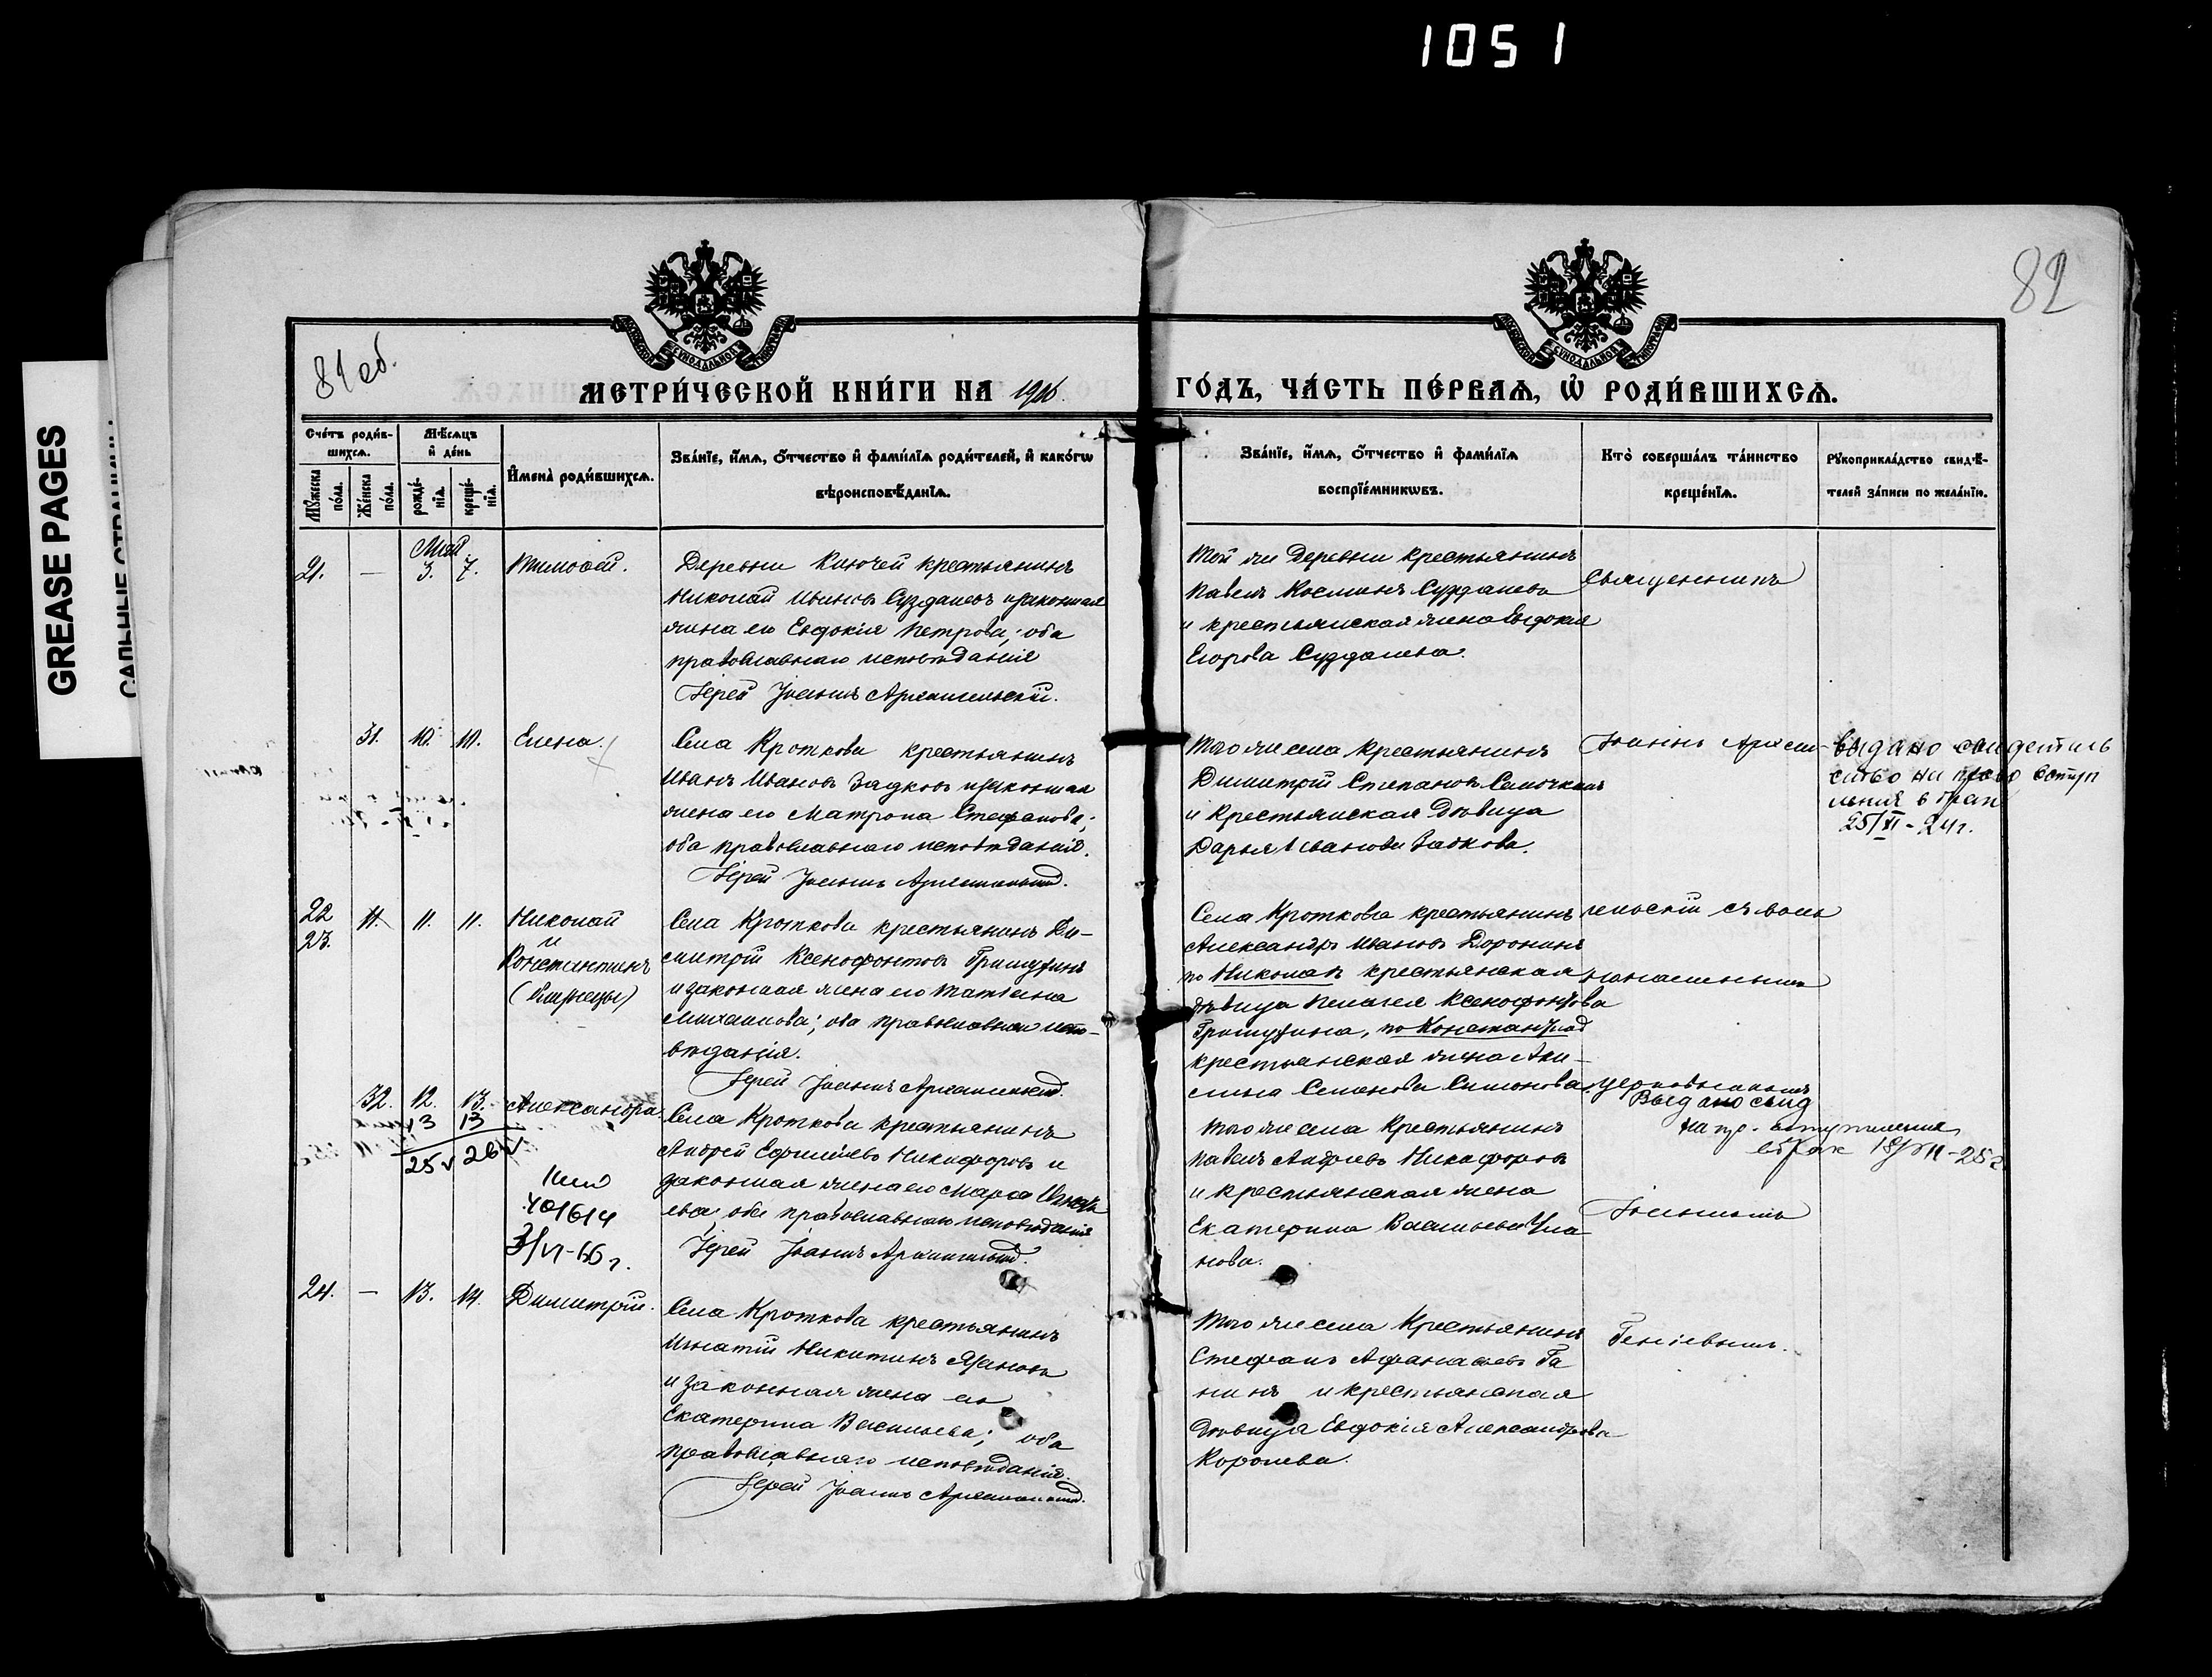 1051
GREASE PAGES
82
81 об.
МЕТРИ́ЧЕСКОЙ КНИ́ГИ НА 1906 ГО́ДЪ, ЧА́СТЬ ПЕ́РВАѦ, Ѽ РОДИ́ВШИХСѦ.
Сче́тъ роди́в-
шихсѧ.
Мѣ́сѧцъ
и҆ де́нь
Мꙋ́жеска
по́ла.
Же́нска
по́ла.
рожде́-
нїѧ.
креще́-
нїѧ.
И҆мена̀ роди́вшихсѧ.
Зва́нїе, и҆́мѧ, ѻ҆́тчество и҆ фами́лїѧ роди́телей, и҆ како́гѡ
вѣроисповѣ́данїѧ.
Зва́нїе, и҆́мѧ, ѻ҆́тчество и҆ фами́лїѧ
воспрїе́мникѡвъ.
Кто̀ соверша́лъ та́инство
креще́нїѧ.
Рꙋкоприкла́дство свидѣ́-
телей за́писи по жела́нїю.
Май
21. — 3. 7. Тимоѳей.
Деревни Ключей крестьянинъ
Николай Ивановъ Суздалевъ и законная
жена его Евдокія Петрова; оба
православнаго исповѣданія
Іерей Іоаннъ Архангельскій.
Той же деревни крестьянинъ
Павелъ Косминъ Суздалевъ
и крестьянская жена Евдокія
Егорова Суздалева.
Священникъ
31. 10. 10. Елена.
Села Кроткова крестьянинъ
Иванъ Ивановъ Задковъ и законная
жена его Матрона Стефанова;
оба православнаго исповѣданія.
Іерей Іоаннъ Архангельскій.
Того же села крестьянинъ
Димитрій Степановъ
и крестьянская дѣвица
Дарья Иванова Задкова.
Іоаннъ Архан-
Выдано свидетель
ство на право вступ
ления в брак
25/XI - 24 г.
22
23. 11. 11. 11. Николай
и
Константинъ
(близнецы)
Села Кроткова крестьянинъ Ди-
митрій Ксенофонтовъ
и законная жена его Татіана
Михаилова; оба православнаго испо-
вѣданія.
Іерей Іоаннъ Архангельскій.
Села Кроткова крестьянинъ
Александръ Ивановъ Доронинъ
по Николаѣ крестьянская
дѣвица Пелагея Ксенофонтова
по Константинѣ
крестьянская жена Аки-
лина Семенова Симонова.
гельскій съ
псаломщикомъ
32. 12. 13. Александра.
13 13
25 26
401614
3/VI-66 г.
Села Кроткова крестьянинъ
Андрей Никифоровъ и
законная жена его Марѳа
ева; оба православнаго исповѣданія
Іерей Іоаннъ Архангельскій.
Того же села крестьянинъ
Павелъ Андреевъ Никифоровъ
и крестьянская жена
Екатерина Васильева Ула
нова.
Выдано свид
на пр. вступления
в брак 18/VII-25 г
Іоанномъ
24. — 13. 14. Димитрій.
Села Кроткова крестьянинъ
Игнатій Никитинъ
и законная жена его
Екатерина Васильева; оба
православнаго исповѣданія.
Іерей Іоаннъ Архангельскій.
Того же села крестьянинъ
Стефанъ Афанасьевъ Га
нинъ и крестьянская
дѣвица Евдокія Александрова
Королева.